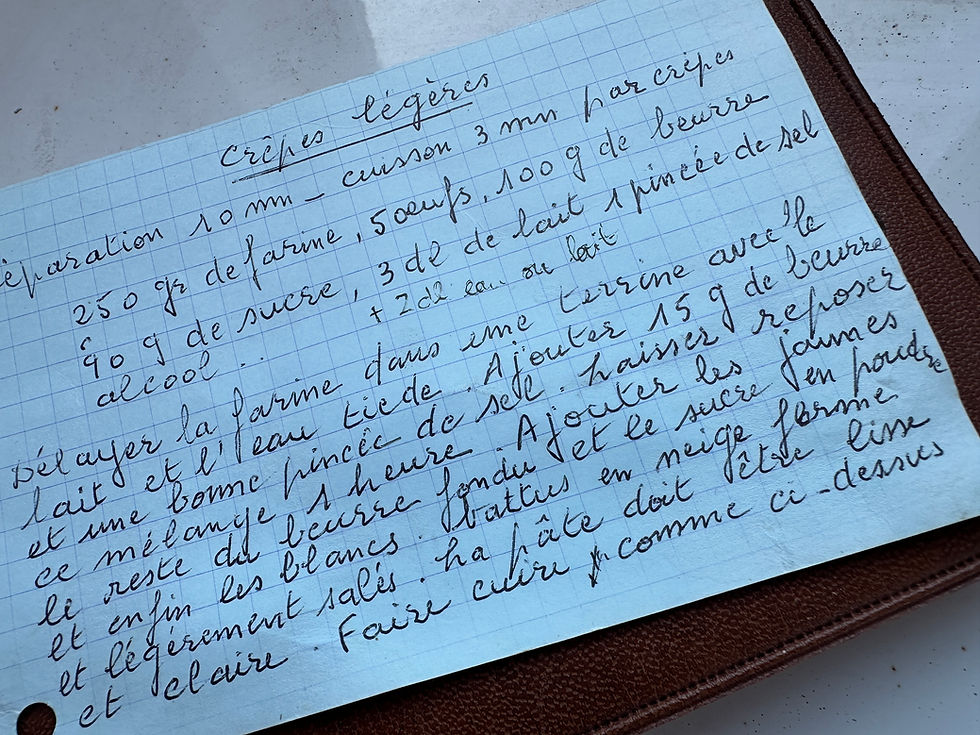 crêpes légères
éparation 10 mn - cuisson 3 mn par crêpes
250 gr de farine, 5 œufs, 100 g de beurre
90 g de sucre, 3 dl de lait 1 pincée de sel
+ 2 dl eau ou lait
alcool..
Délayer la farine dans une terrine avec le
lait et l'eau tiède. Ajouter 15 g de beurre
et une bonne pincée de sel. Laisser reposer
ce mélange 1 heure. Ajouter les jaunes
le reste du beurre fondu et le sucre en poudre
et enfin les blancs battus en neige ferme
et légèrement salés. La pâte doit être lisse
et claire. Faire cuire comme ci-dessus